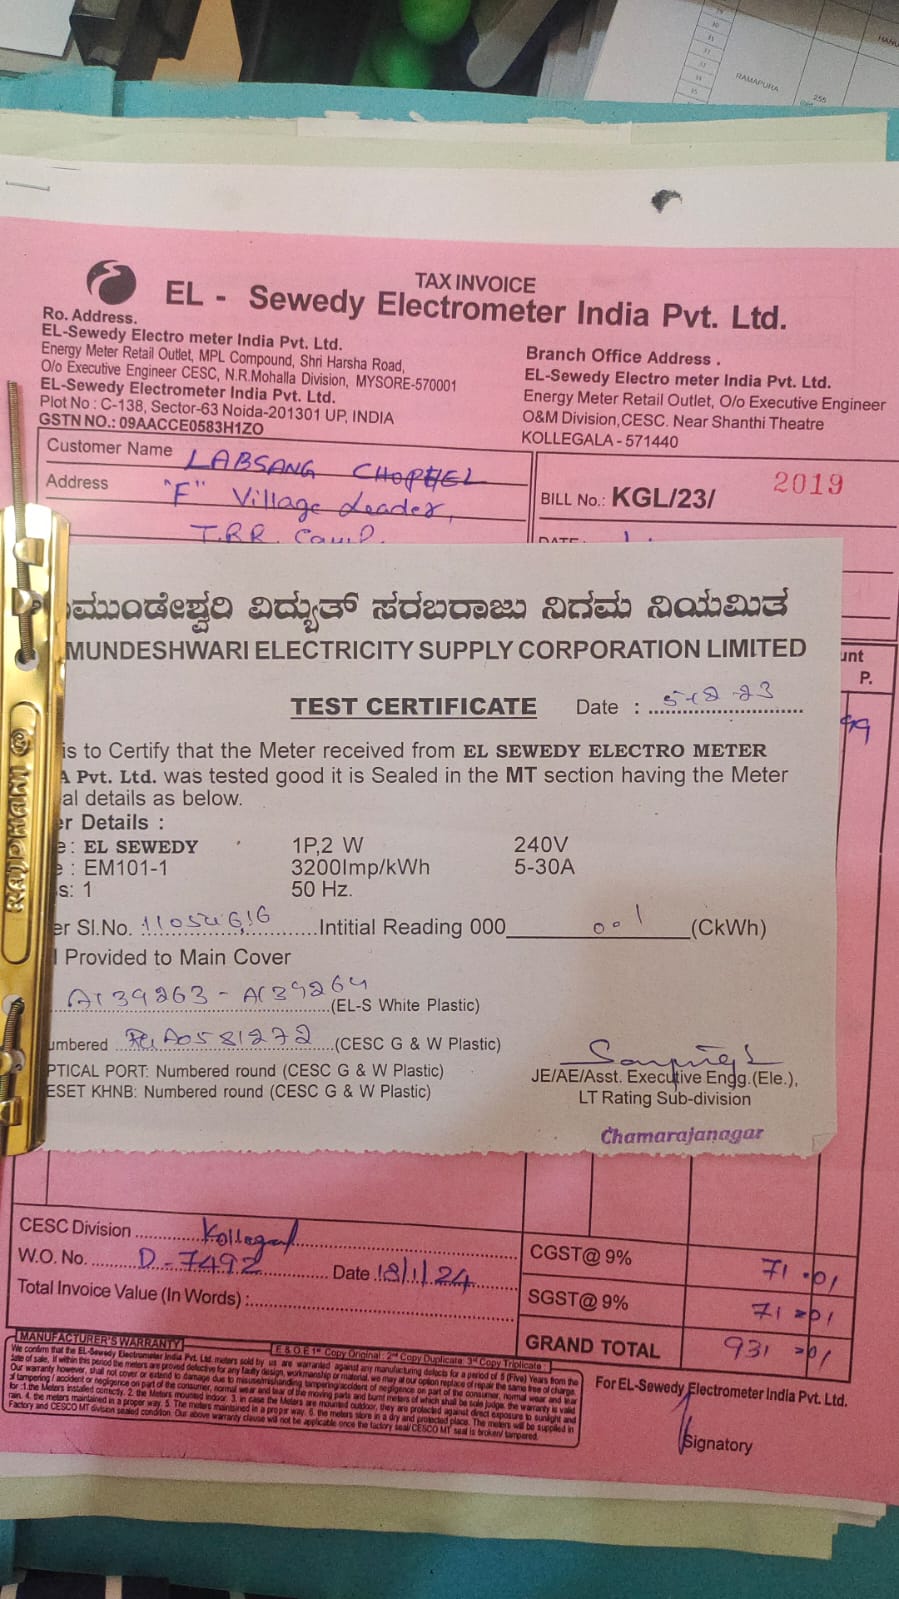 RAMAPURA
255
TAX INVOICE
EL - Sewedy Electrometer India Pvt. Ltd.
Ro. Address.
EL-Sewedy Electro meter India Pvt. Ltd.
Energy Meter Retail Outlet, MPL Compound, Shri Harsha Road,
O/o Executive Engineer CESC, N.R.Mohalla Division, MYSORE-570001
EL-Sewedy Electrometer India Pvt. Ltd.
Plot No : C-138, Sector-63 Noida-201301 UP, INDIA
GSTN NO.: 09AACCE0583H1ZO
Branch Office Address .
EL-Sewedy Electro meter India Pvt. Ltd.
Energy Meter Retail Outlet, O/o Executive Engineer
O&M Division,CESC. Near Shanthi Theatre
KOLLEGALA - 571440
Customer Name LABSANG CHOPHEL
Address "F" Village Leader,
T.R.R. Camp.
BILL No.: KGL/23/ 2019
DATE
ಮುಂಡೇಶ್ವರಿ ವಿದ್ಯುತ್ ಸರಬರಾಜು ನಿಗಮ ನಿಯಮಿತ
MUNDESHWARI ELECTRICITY SUPPLY CORPORATION LIMITED
unt
P.
99
TEST CERTIFICATE Date : 5-12-23
is to Certify that the Meter received from EL SEWEDY ELECTRO METER
A Pvt. Ltd. was tested good it is Sealed in the MT section having the Meter
al details as below.
er Details :
e : EL SEWEDY 1P,2 W 240V
e : EM101-1 3200Imp/kWh 5-30A
s: 1 50 Hz.
er Sl.No. 11054616 Intitial Reading 000 001 (CkWh)
l Provided to Main Cover
A139263 - A139264 (EL-S White Plastic)
umbered A0581272 (CESC G & W Plastic)
PTICAL PORT: Numbered round (CESC G & W Plastic)
ESET KHNB: Numbered round (CESC G & W Plastic)
JE/AE/Asst. Executive Engg.(Ele.),
LT Rating Sub-division
Chamarajanagar
RAJDHANI
CESC Division Kollegal
W.O. No. D-7492 Date 18/1/24
Total Invoice Value (In Words) :
CGST@ 9% 71.01
SGST@ 9% 71=01
GRAND TOTAL 931=01
MANUFACTURER'S WARRANTY
E & O.E 1st Copy Original : 2nd Copy Duplicate: 3rd Copy Triplicate :
We confirm that the EL-Sewedy Electrometer India Pvt. Ltd. meters sold by us are warranted against any manufacturing defects for a period of 5 (Five) Years from the
For EL-Sewedy Electrometer India Pvt. Ltd.
Signatory